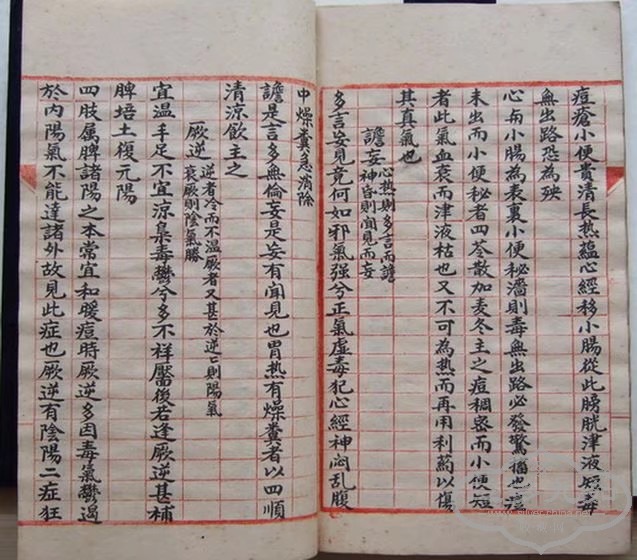 痘瘡小便貴清長熱蘊心經移小腸從此膀胱津液短毒
無出路恐為殃
心与小腸為表裏小便秘濇則毒無出路必發驚搐也痘
未出而小便秘者四苓散加麦冬主之痘稠宻而小便短
者此氣血衰而津液枯也又不可為热而再用利药以傷
其真氣也
譫妄 心热則多言而譫
神昏則闻見而妄
多言妄見竟何如邪氣强兮正氣虚毒犯心經神闷乱腹
中燥糞急消除
譫是言多無倫妄是妄有闻見也胃热有燥糞者以四順
清涼飲主之
厥逆 逆者冷而不温厥者又甚於逆亡則陽氣
衰厥則陰氣勝
宜温手足不宜涼臬毒欝兮多不祥靨後若逢厥逆甚補
脾培土復元陽
四肢属脾諸陽之本常宜和暖痘時厥逆多因毒氣欝遏
於内陽氣不能達諸外故見此症也厥逆有陰陽二症狂